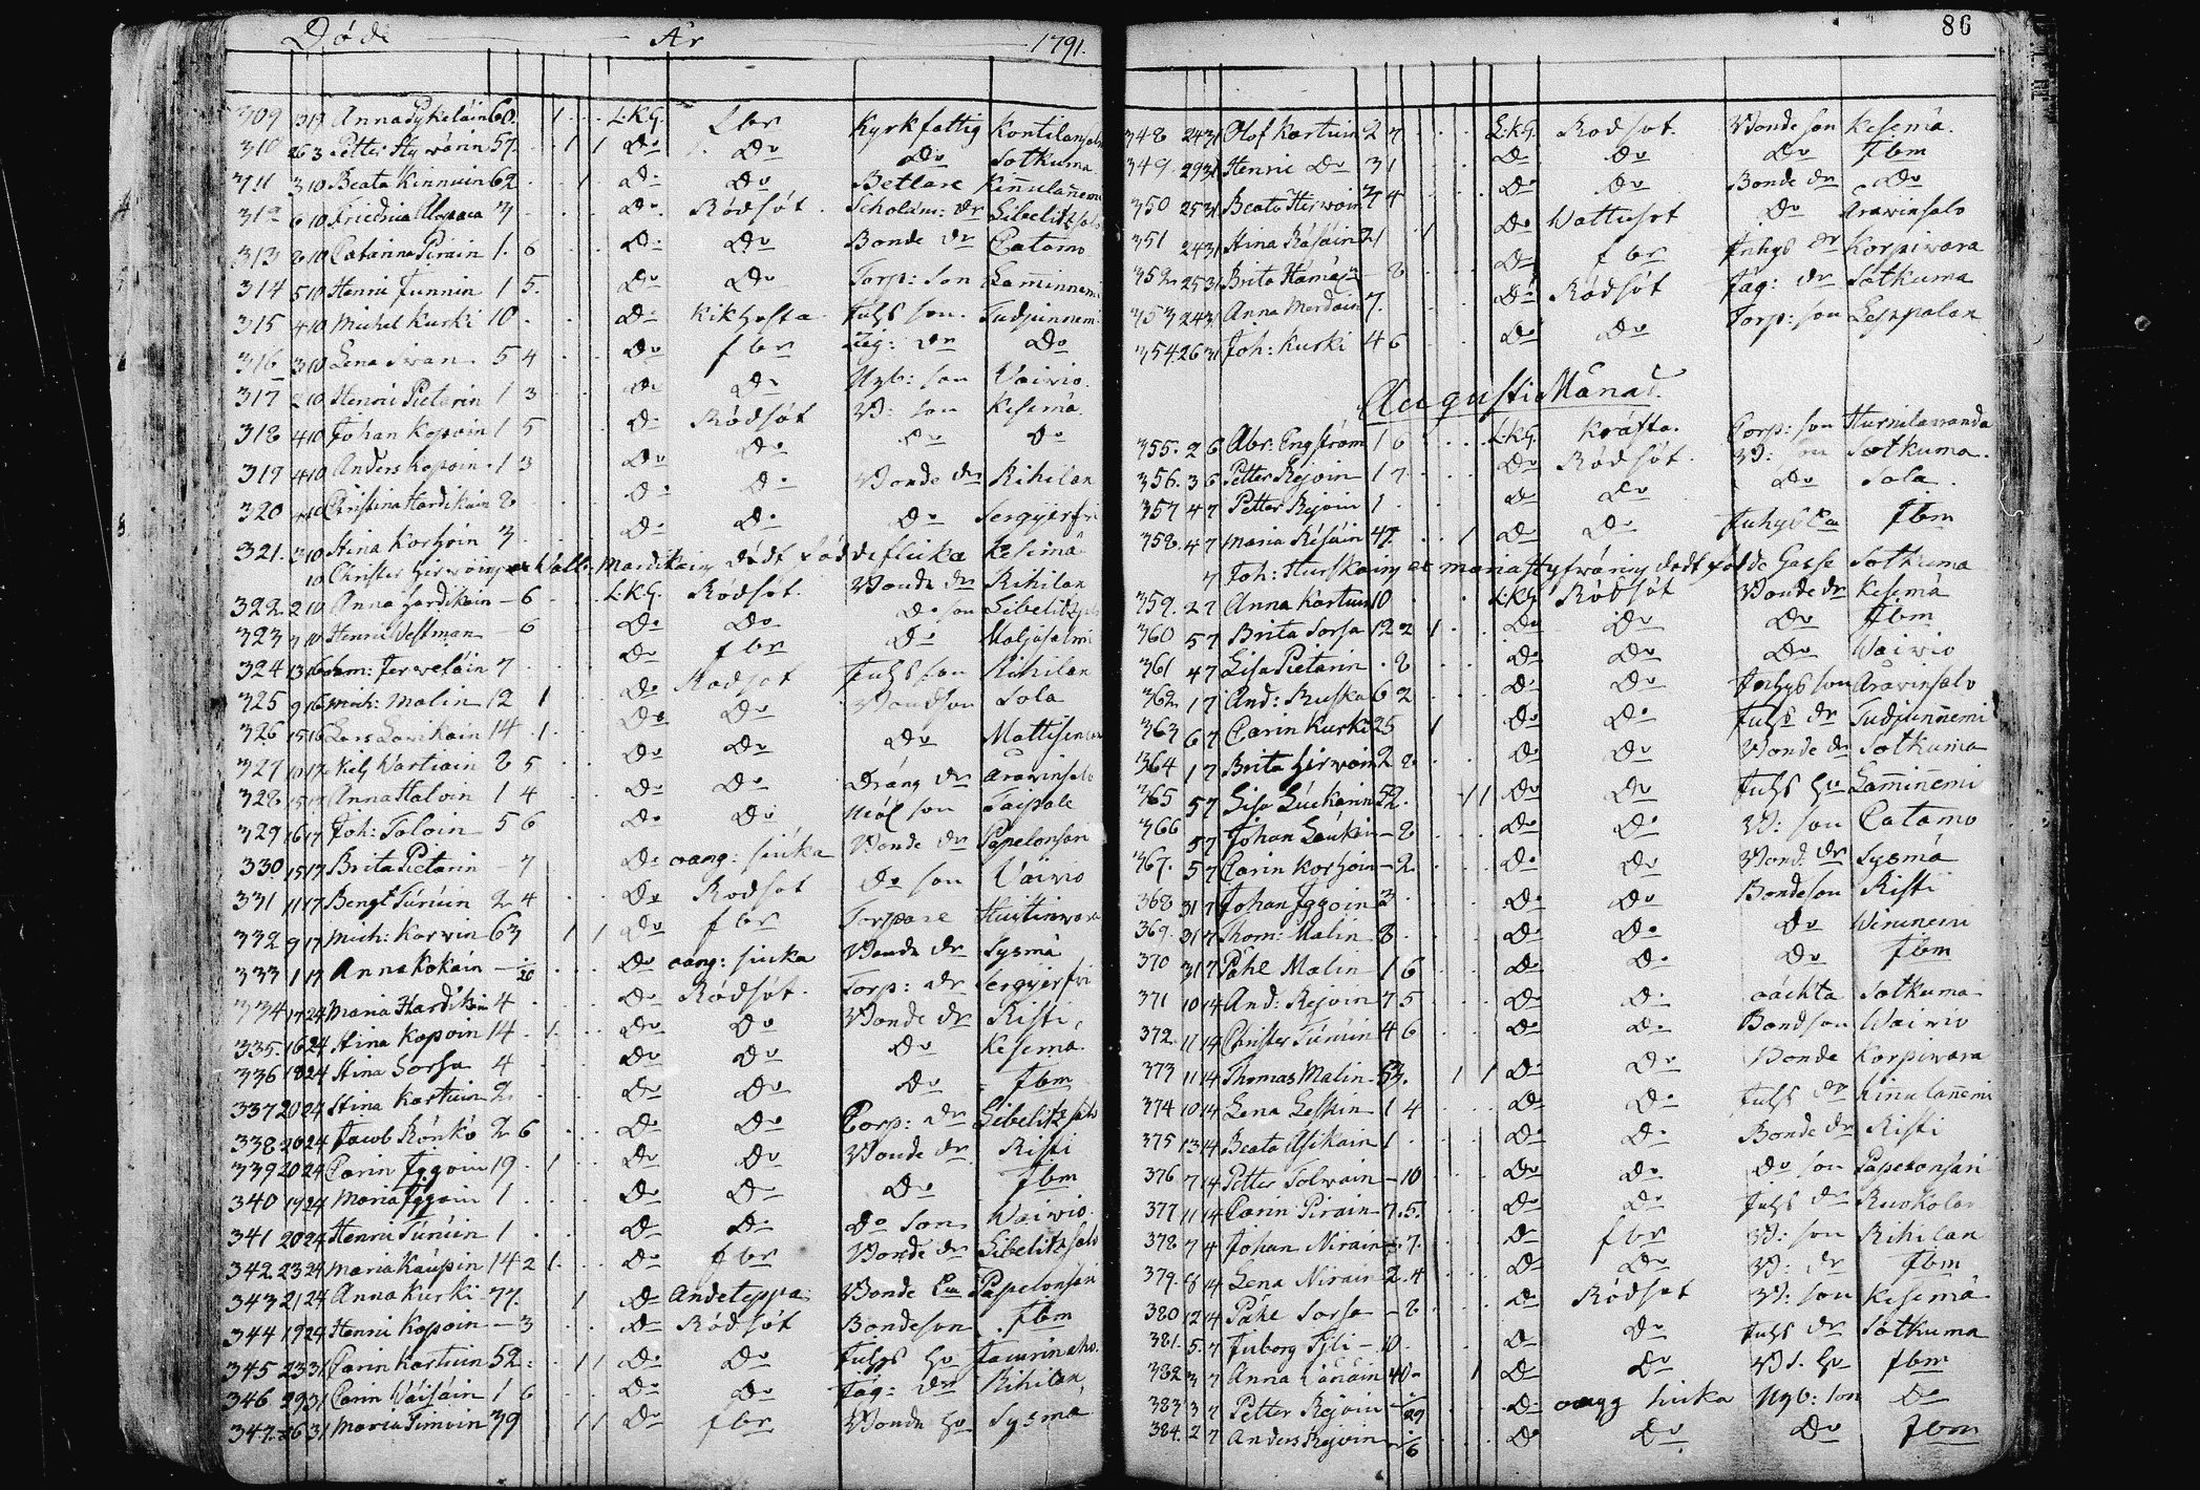 Döde År 1791.
309 13 19 Anna Pykeläin 60. 1 L:K:G. fbr Kyrkfattig Kontilansalo
310 26 3 Petter Hywärin 57. 1 1 Do Do Do Sotkuma
311 3 10 Beata Kinnuin 62 1 Do Do Betlare Kinnulanemi
312 6 10 Friedrica 3 Do Rödsöt Scholäm: dr Libelitzsalo
313 8 10 Catarina Pirain 1. 6 Do Do Bonde dr Catamo
314 5 10 Henric Junnin 1 5. Do Do Torp: son Laminnemi
315 4 10 Michel Kurski 10. Do Kikhosta Inhs son Tudjunnemi
316 3 10 Lena Iwan 5 4 Do fbr dr Do
317 2 10 Henric Pietarin 1 3 Do Do Nyb: son Vaivio.
318 4 10 Johan Kopoin 1 5 Do Rödsöt B: son Kesemä
319 4 10 Anders Kopoin 1 3 Do Do Do Do
320 4 10 Christina Hardikain 8 Do Do Bonde dr Rihilan
321. 3 10 Stina Korhoin 3 Do Do Do Sergyierfvi
10 Christer Hirwoin Mardikain dödfödde flicka Kesemä
322 2 10 Anna Hardikain – 6 L:K:G. Rödsöt. Bonde dr Rihilan
323 3 10 Henric Vestman – 6 Do Do Do son Libelitzsalo
324 13 16 Sam: Jerweläin 7 Do fbr Do Maljasalmi
325 9 16 Mich: Malin 12 1 Do Rodsot Inhs son Rihilan
326 15 16 Lars Lavikain 14 1 Do Do Bondson Sola
327 10 17 Kilj Vartiain 8 5 Do Do Do
328 15 17 Anna Haloin 1 4 Do Do Dräng dr Arawinsalo
329 16 17 Joh: Toloin 5 6 Do Do Miöl son Taipale
330 15 17 Brita Pietarin 7 Do oang: siuka Bonde dr Papelonsari
331 11 17 Bengt Turuin 2 4 Do Rodsot Do son Vaivio
332 9 17 Mich: Korvin 63 1 1 Do fbr Torpare Hustinvara
333 1 17 Anna Kokain – 20 Do oang: siuka Bonde dr Sysmä
334 17 24 Maria Hardikain 4 Do Rödsöt. Torp: dr Sergyierfvi
335. 16 24 Stina Kopoin 14 1 Do Do Bonde dr Risti
336 18 24 Stina Sorsa 4 Do Do Do Kesemä
337 20 24 Stina Kortuin 2 Do Do Do Ibm
338 20 24 Jacob Rönkö 2 6 Do Do Torp: dr Libelitzsalo
339 20 24 Carin Iggoin 19. 1 Do Do Bonde dr Risti
340 19 24 Maria Iggoin 1 Do Do Do Ibm
341 20 24 Henric Turuin 1 Do Do Do son Waivio
342 23 24 Maria Kaupin 14 2 1 Do fbr Bonde dr Libelitzsalo
343 21 24 Anna Kurki 77. 1 Do Andeteppa Bonde Ea Papelonsari
344 19 24 Henric Kopoin – 3 Do Rödsöt Bondeson Ibm
345 23 31 Carin Kortuin 52 1 1 Do Do Inhs hu
346 29 31 Carin Väisäin 1 6 Do Do Tåg: dr Rihilan
347 26 31 Maria Simoin 39 1 1 Do fbr Bonde hu Sysmä
86
348 24 31 Olof Kortuin 2 7 L:K:G. Rodsot. Bondeson Kesemä.
349. 29 31 Henric Do 3 1 Do Do Do Ibm
350 25 31 Beata Hirwoin 7 4 Do Do Bonde dr Do
351 24 31 Stina Räsäin 21 1 Do Wattusot Do Arawinsalo
352 25 31 Brita Hämäläin – 8 Do fbr Inhys dr Korpiwara
353 24 31 Anna Merdäin 7. Do Rödsöt Tåg: dr Sotkuma
354 26 31 Joh: Kurki 4 6 Do Do Torp: son Leppälan
Augusti Månad.
355. 2 6 Abr: Engström 1 6 L:K:G. Kräfta. Torp: son
356. 3 6 Petter Rejoin 1 7. Do Rödsöt. B: son Sotkuma.
357 4 7 Petter Rejoin 1 Do Do Do Sola.
358. 4 7 Maria Räsäin 47. 1 Do Do Inhys Ea Ibm
7 Joh: Hurskainy et Maria Hyfwäriny dödfödde Gosse Sotkuma
359. 2 7 Anna Kortuin 10 L:K:G. Rödsöt Bonde dr Kesemä
360 5 7 Brita Sorsa 12 2 1 Do Do Do Ibm
361 4 7 Lisa Pietarin . 8 Do Do Do Vaivio
362 1 7 And: Ruska 6 2 Do Do Inhys son Arawinsalo
363 6 7 Carin Kurki 25 1 Do Do Inhs dr Tudjunnemi
364 1 7 Brita Hirwoin 2 8 Do Do Bonde dr Sotkuma
365 5 7 Lisa Laukarin 52. 1 1 Do Do Inhs hu Laminnemi
366 5 7 Johan Laukain – 8 Do Do B: son Catamo
367. 5 7 Carin Korhoin – 2 Do Do Bond: dr Sysmä
368 31 7 Johan Iggoin 3 Do Do Bondeson Risti
369. 31 7 Thom: Malin 8 Do Do Do
370 31 7 Påhl Malin 1 6 Do Do Do Ibm
371 10 14 And: Rejoin 7 5 Do Do oäckta Sotkuma
372. 11 14 Christer Turuin 4 6 Do Do Bondson Waivio
373 11 14 Thomas Malin 53. 1 1 Do Do Bonde Korpiwara
374 10 14 Lena Leskin 1 4 Do Do Inhs dr Kinulanemi
375 13 14 Beata Asikain 1 Do Do Bonde dr Risti
376 7 14 Petter Tolwain – 10 Do Do Do son Papelonsari
377 11 14 Carin Pirain 7. 5. Do Do Inhs dr Ruokolax
378 7 14 Johan Nirain – 7. Do fbr B: son Rihilan
379. 8 14 Lena Nirain 2. 4 Do Do B: dr Ibm
380 12 14 Påhl Sorsa – 8 Do Rödsot B: son Kesemä
381. 5. 7 Inborg – 10. Do Do Inhs dr Sotkuma
382 3 7 Anna 40 – 1 Do Do hu Ibm
383 3 7 Petter Rejoin 29 Do oangg siuka Nyb: son Do
384. 2 7 Anders Rejoin – 6 Do Do Do Ibm